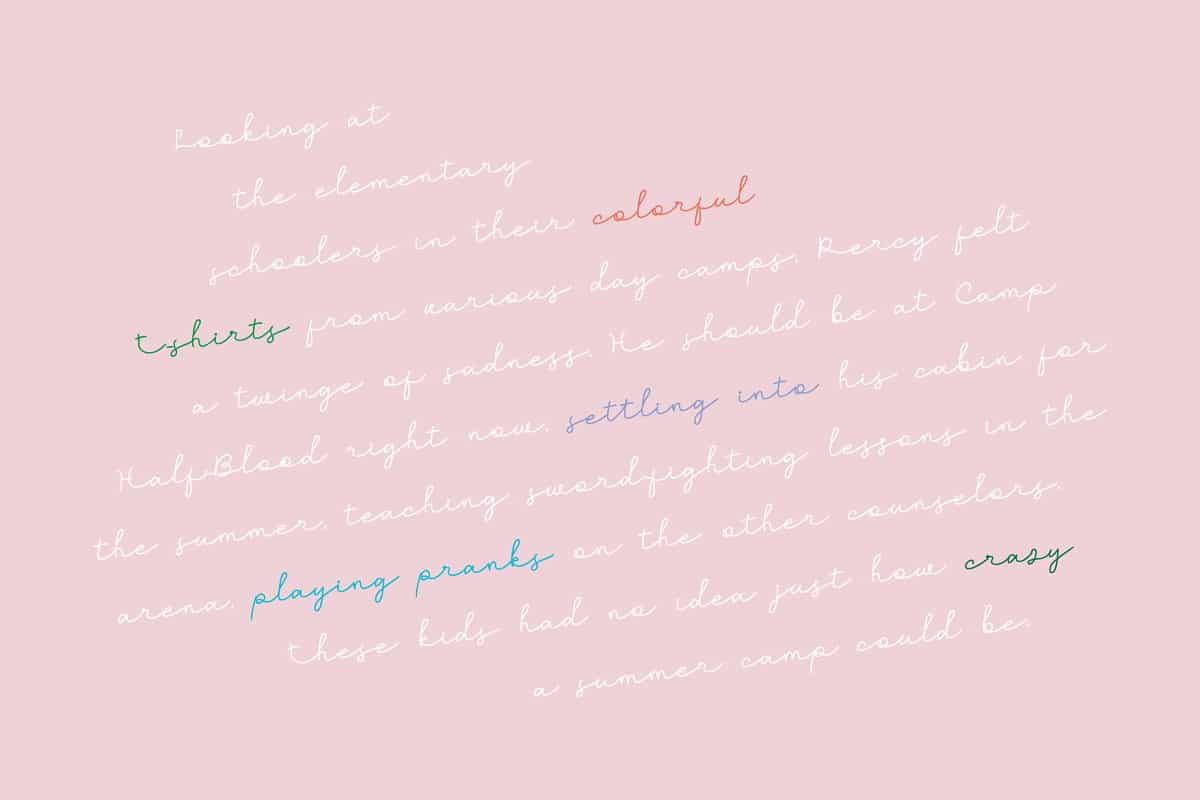 Looking at
the elementary
schoolers in their colorful
t-shirts from various day camps, Percy felt
a twinge of sadness. He should be at Camp
Half-Blood right now, settling into his cabin for
the summer, teaching sword-fighting lessons in the
arena, playing pranks on the other counselors.
These kids had no idea just how crazy
a summer camp could be.